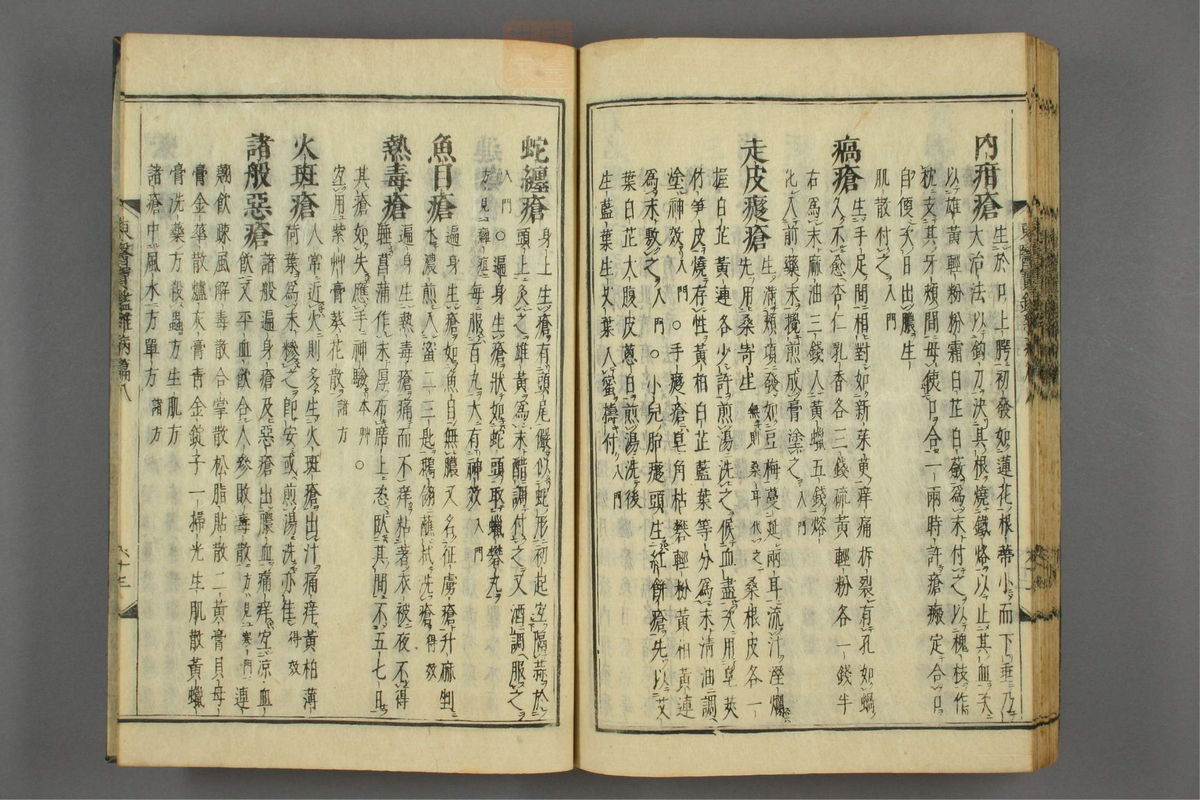 內疳瘡 生於口上腭初發如蓮花根蒂小而下垂乃
大治法以鉤刀決其根燒鐵烙以止其血次
以雄黃輕粉粉霜白芷白蘞爲末付之以槐枝作
枕支其牙頰間毋使口合一兩時許瘡瘢定合口
自便次日出膿生
肌散付之入門
瘑瘡 生手足間相對如新茱萸痒痛折裂有孔如蝸
久不愈杏仁乳香各三錢硫黃輕粉各一錢半
右爲末麻油三錢入黃蠟五錢熔
化入前藥末攪煎成膏塗之入門
走皮瘡 生滿頰項發如豆梅蔓延兩耳流汁濕爛
先用桑寄生無則桑耳代之桑根皮各一
握白芷黃連各少許煎湯洗之候血盡次用皂莢
竹笋皮燒存性黃栢白芷藍葉等分爲末淸油調
塗神效入門○手瘡皂角枯礬輕粉黃栢黃連
爲末付之入門○小兒胎頭生紅餠瘡先以艾
葉白芷大腹皮葱白煎湯洗後
生藍葉生艾葉入蜜擣付入門
蛇纏瘡 身上生瘡有頭尾儼似蛇形初起宜隔蒜於
頭上灸之雄黃爲末醋調付之又酒調服之
入門○遍身生瘡狀如蛇頭取蠟礬丸
方見每服百丸大有神效入門
魚目瘡 遍身生瘡如魚目無膿又名征虜瘡升麻剉
水濃煎入蜜二三匙鵝翎蘸拭洗瘡得效
熱毒瘡 遍身生熱毒瘡痛而不痒粘著衣被夜不得
睡菖蒲作末厚布席上恣臥其間不五七日
其瘡如失應手神驗本艸○
宜用紫艸膏葵花散諸方
火斑瘡 人常近火則多生火斑瘡出汁痛痒黃柏薄
荷葉爲末糝之卽安或煎湯洗亦佳得效
諸般惡瘡 諸般遍身瘡及惡瘡出膿血痛痒宜凉血
飮又平血飮合人參敗毒散方見寒門連
翹飮踈風解毒散合掌散松脂貼散二黃膏貝母
膏金華散爐灰膏靑金錠子一掃光生肌散黃蠟
膏洗藥方殺蟲方生肌方
諸瘡中風水方單方諸方
東醫寶鑑雜病篇八